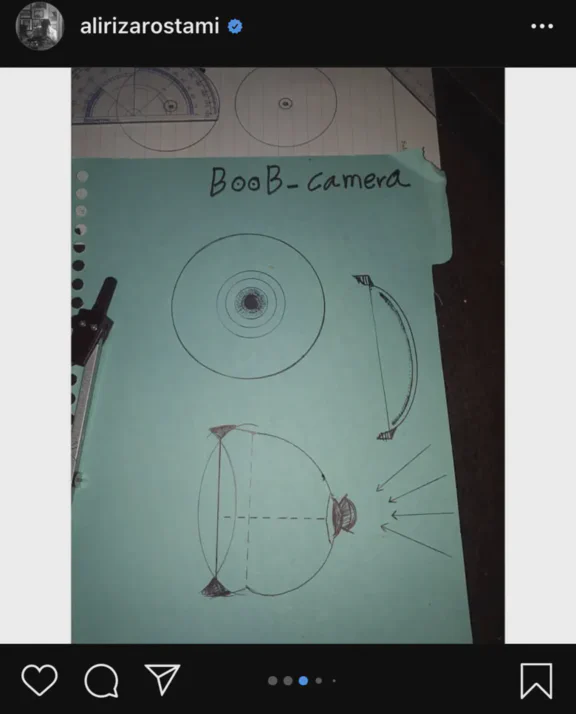 alirizarostami
BooB-camera